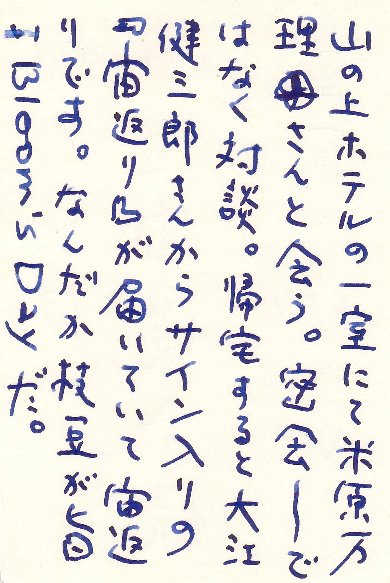 山の上ホテルの一室にて米原万
理さんと会う。密会ーで
はなく対談。帰宅すると大江
健三郎さんからサイン入りの
『宙返り』が届いていて宙返
りです。なんだか枝豆が旨
い Bloom's Day だ。